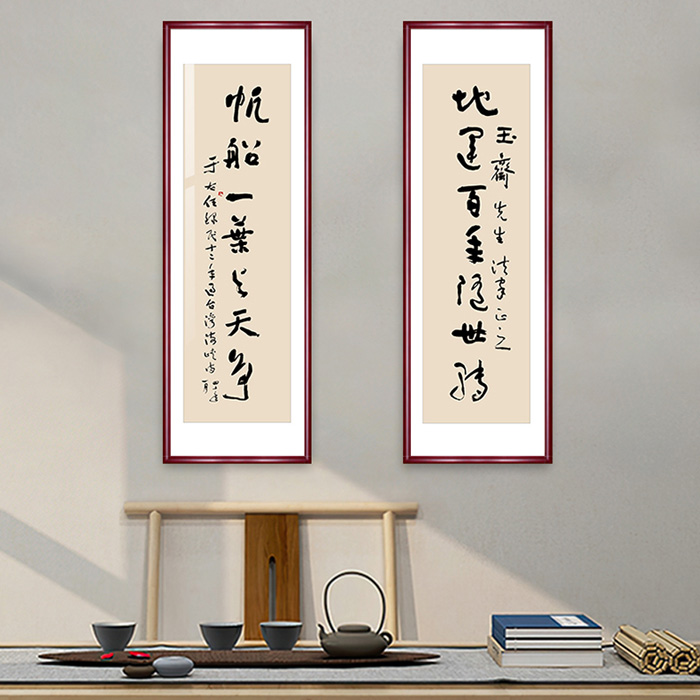 玉齋先生法家正之
地運百年隨世轉
帆船一葉与天爭
于右任録民十二年過台灣海峽